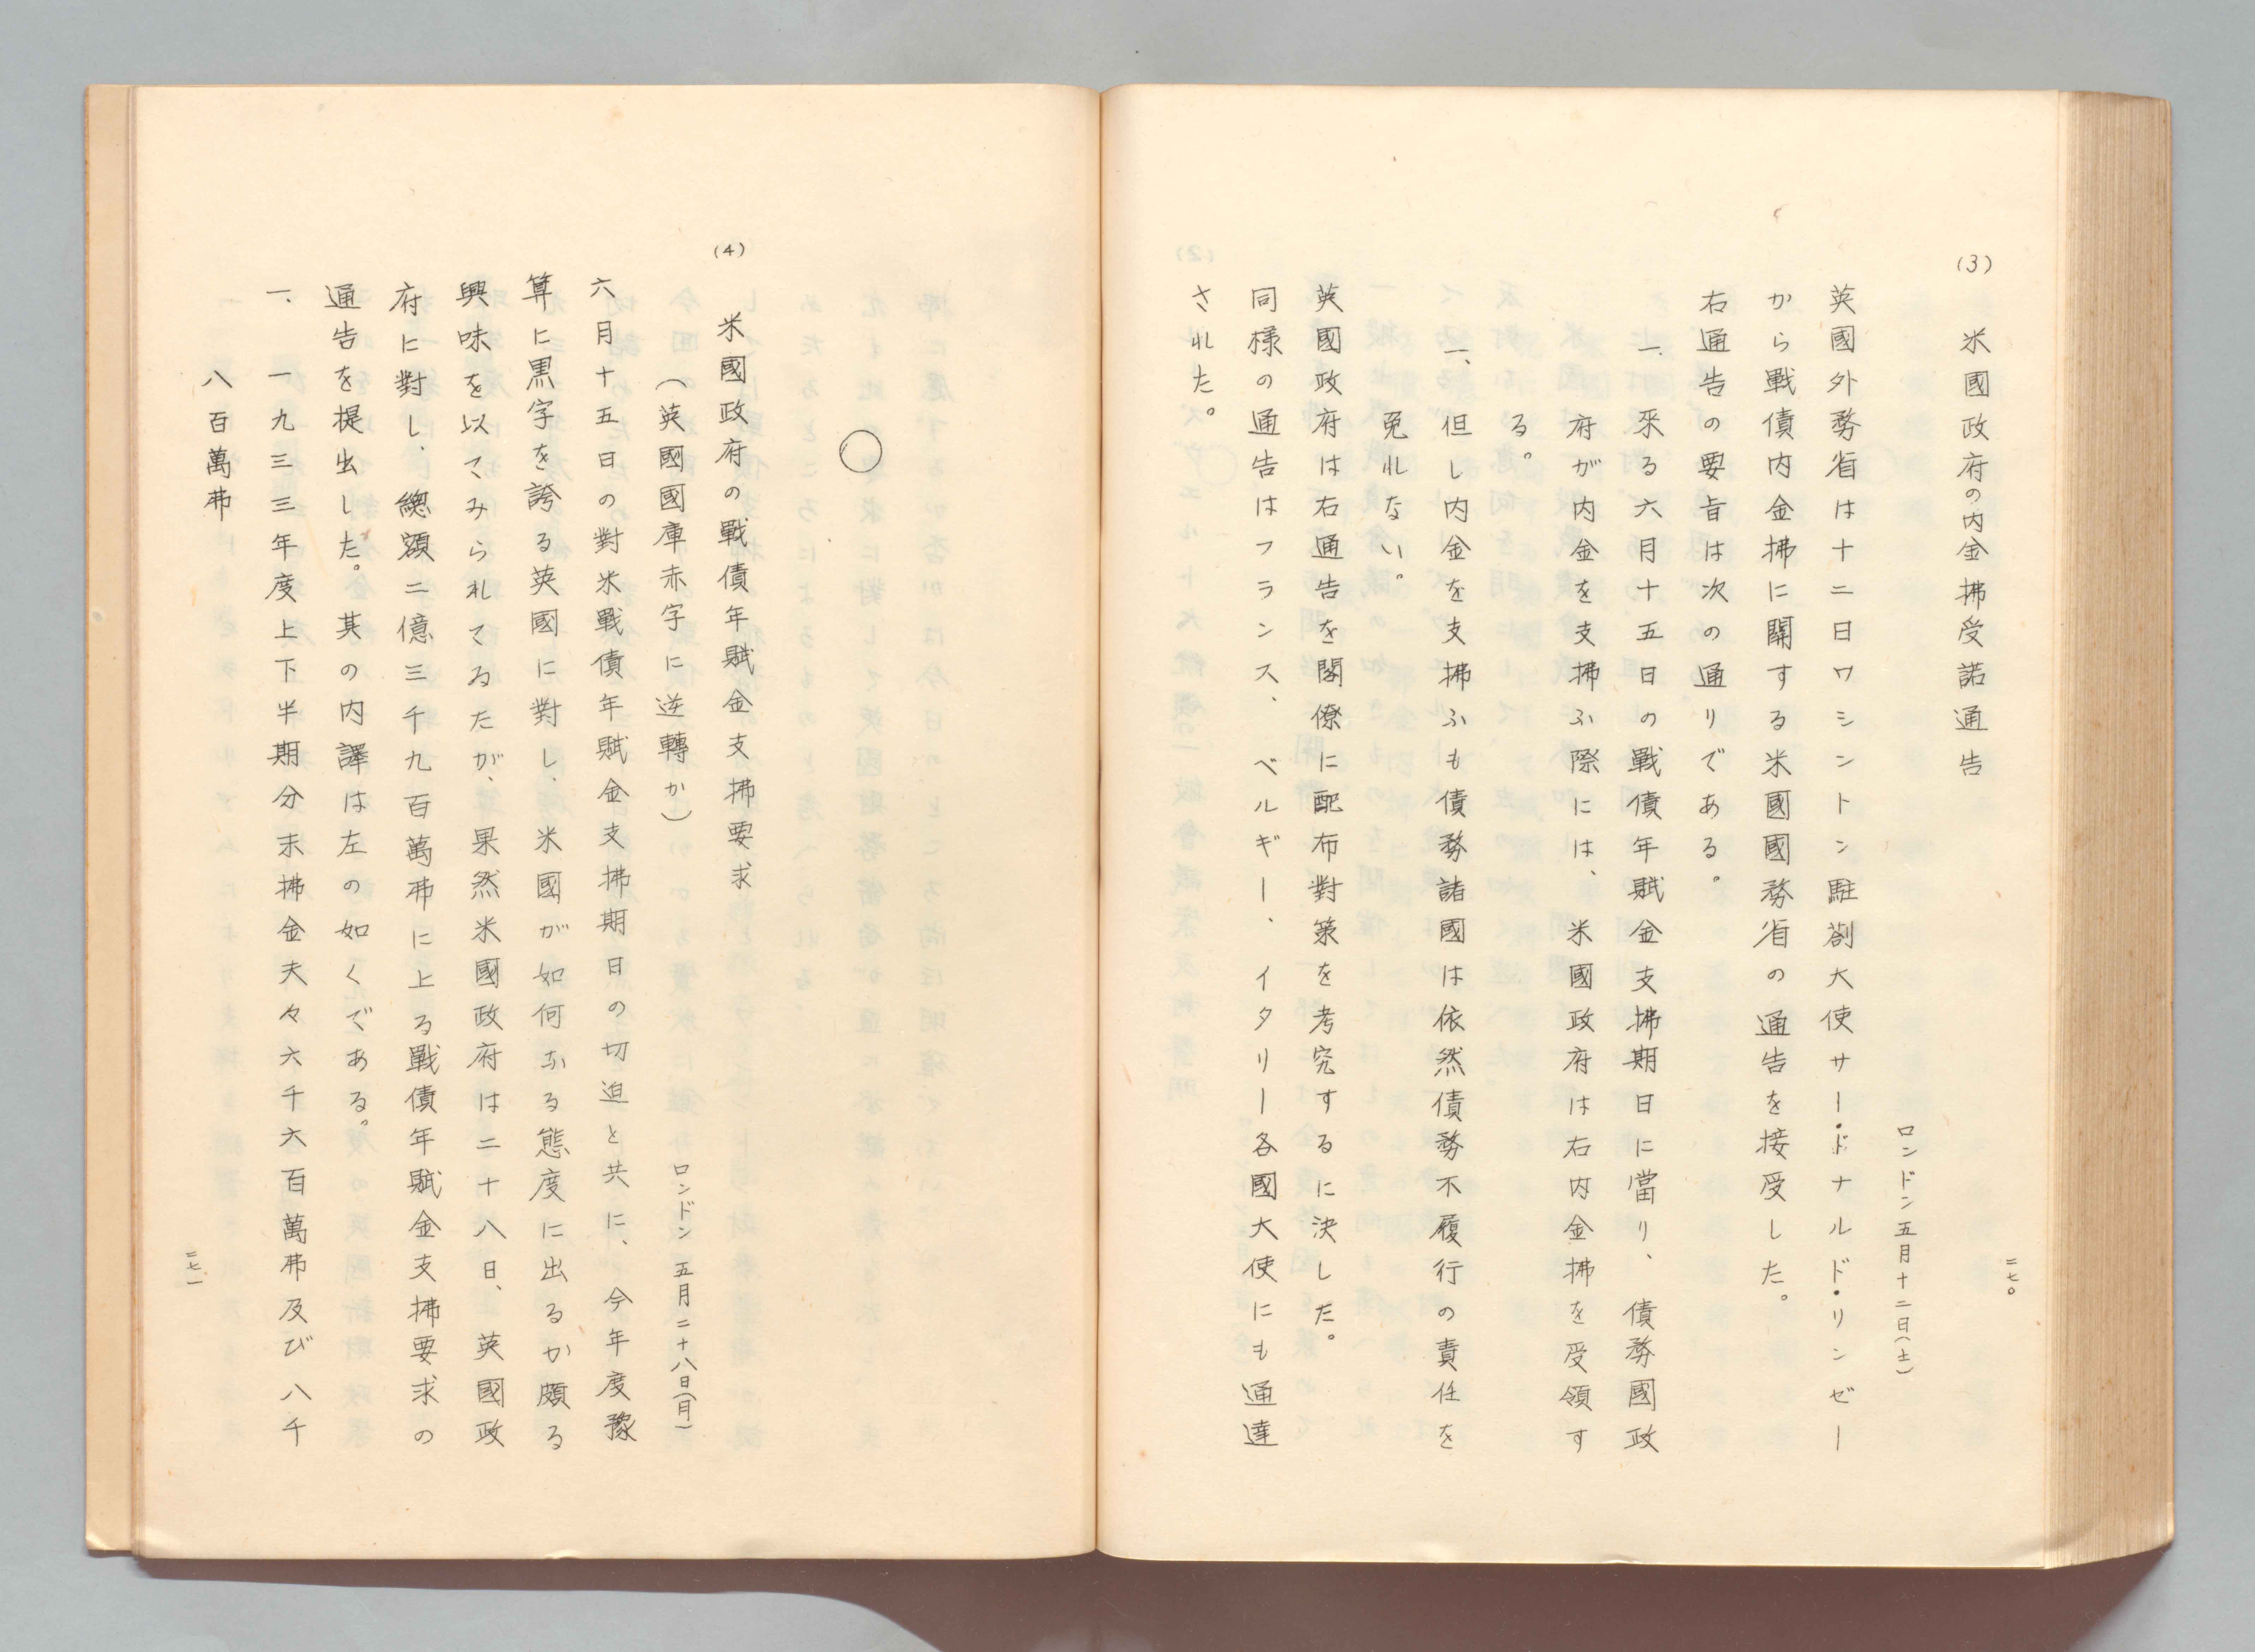 (3)
米國政府の内金拂受諾通告
ロンドン五月十二日(土)
英國外務省は十二日ワシントン駐剳大使サー・ドナルド・リンゼー
から戰債内金拂に關する米國國務省の通告を接受した。
右通告の要旨は次の通りである。
一、來る六月十五日の戰債年賦金支拂期日に當り、債務國政
府が内金を支拂ふ際には、米國政府は右内金拂を受領す
る。
一、但し内金を支拂ふも債務諸國は依然債務不履行の責任を
免れない。
英國政府は右通告を閣僚に配布對策を考究するに決した。
同様の通告はフランス、ベルギー、イタリー各國大使にも通達
された。
二七〇
(4)
米國政府の戰債年賦金支拂要求
(英國國庫赤字に逆轉か)
ロンドン五月二十八日(月)
六月十五日の對米戰債年賦金支拂期日の切迫と共に、今年度豫
算に黒字を誇る英國に對し、米國が如何なる態度に出るか頗る
興味を以てみられてゐたが、果然米國政府は二十八日、英國政
府に對し、總額二億三千九百萬弗に上る戰債年賦金支拂要求の
通告を提出した。其の内譯は左の如くである。
一、一九三三年度上下半期分未拂金夫々六千六百萬弗及び八千
八百萬弗
二七一